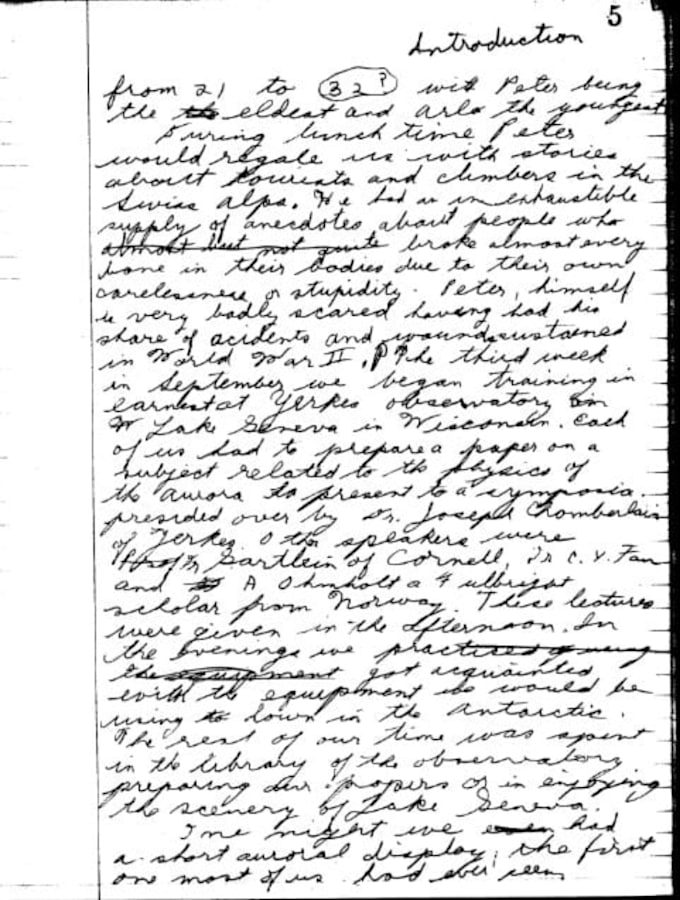 5
Introduction
from 21 to 32? with Peter being
the the eldest and Arlo the youngest
During lunch time Peter
would regale us with stories
about tourists and climbers in the
Swiss Alps. He had an inexhaustible
supply of anecdotes about people who
almost but not quite broke almost every
bone in their bodies due to their own
carelessness or stupidity. Peter, himself
is very badly scared having had his
share of acidents and wounds sustained
in World War II. ¶ The third week
in September we began training in
earnest at Yerkes observatory in
W Lake Geneva in Wisconsin. Each
of us had to prepare a paper on a
subject related to the physics of
the aurora to present to a symposia
presided over by Dr. Joseph Chamberlain
of Yerkes. Other speakers were
Gartlein of Cornell, Dr C. Y. Fan
and A Ohmholt a Fulbright
scholar from Norway. These lectures
were given in the afternoon. In
the evenings we practiced using
the equipment got acquainted
with the equipment we would be
using to down in the Antarctic.
The rest of our time was spent
in the library of the observatory
preparing our papers or in enjoying
the scenery of Lake Geneva.
One night we even had
a short auroral display, the first
one most of us had ever seen